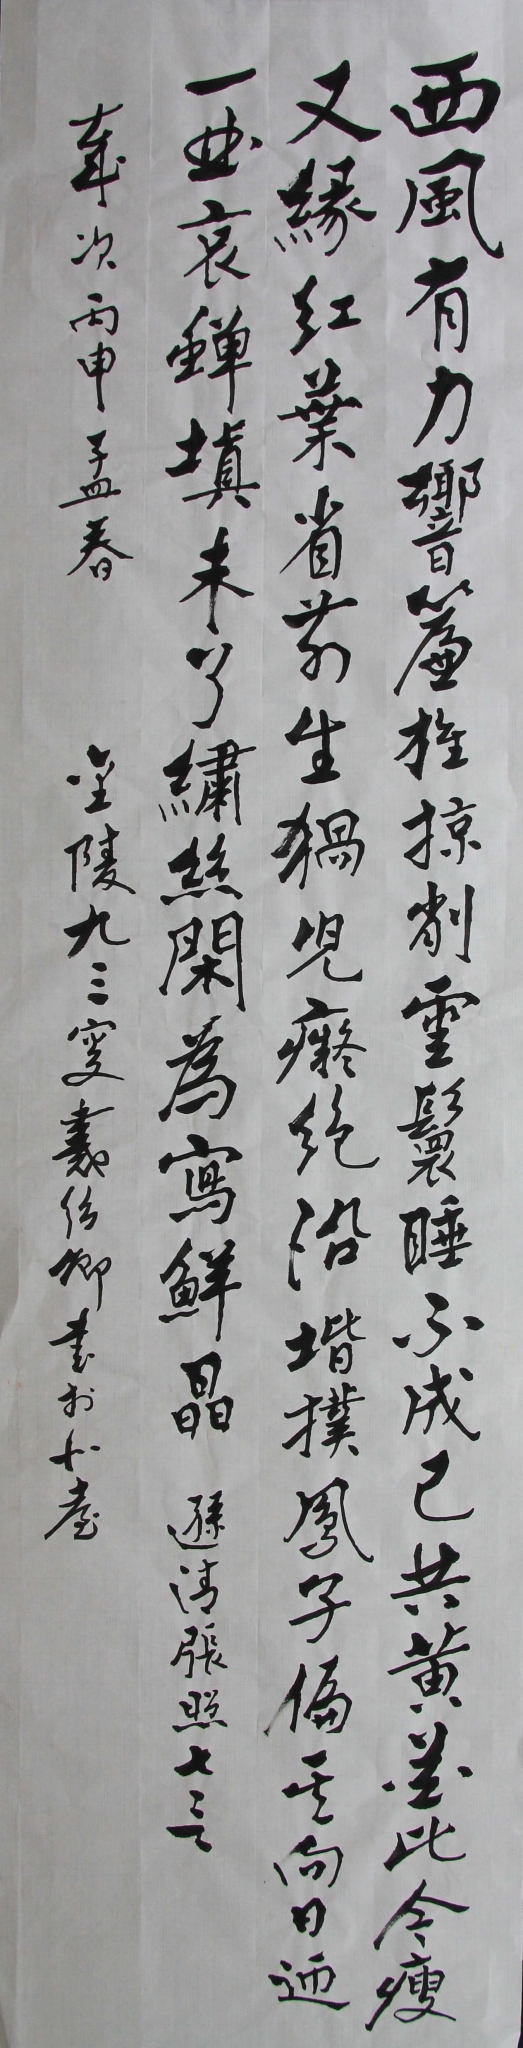 西風有力響簾旌掠削雲鬟睡不成已共黃花比今瘦
又緣紅葉省前生猧兒癡絕沿堦撲鳳子偏工向日迎
一曲哀蟬填未了繡絲閑為寫鮮晶 遜清張照七言
歲次丙申孟春 金陵九三叟 書於